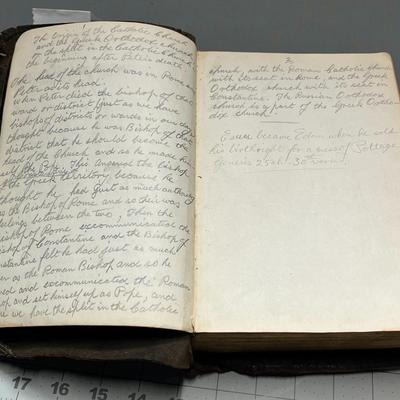 The Origin of the Catholic Church
and the Greek Orthodox church
or the split in the Catholic Church
the beginning after Peter's death
The head of the church was in Rome and
Peter as its head.
when Peter died the bishop of that
ward or district (just as we have
bishops of districts or wards in our day)
thought because he was Bishop of that
district that he should become the
head of the Church and so he made him
self the Pope. This angered the bishop
of the Greek territory because he
thought he had just as much authority
as the Bishop of Rome and so there was
feelings between the two, Then the
Bishop of Rome excommunicated the
Bishop of Constantine and the Bishop of
Constantine felt he had just as much
as the Roman Bishop and so he
and excommunicated the Roman
and set himself up as Pope, and
we have the split in the Catholic
2
church, with the Roman Catholic church
with its seat in Rome, and the Greek
Orthodox church with its seat in
Constantine. The Russian Orthodox
church is a part of the Greek Ortho-
dox church.
Esau became Edom when he sold
his birthright for a mess of Pottage
Genesis 25ch. 30th verse.
17 16 15